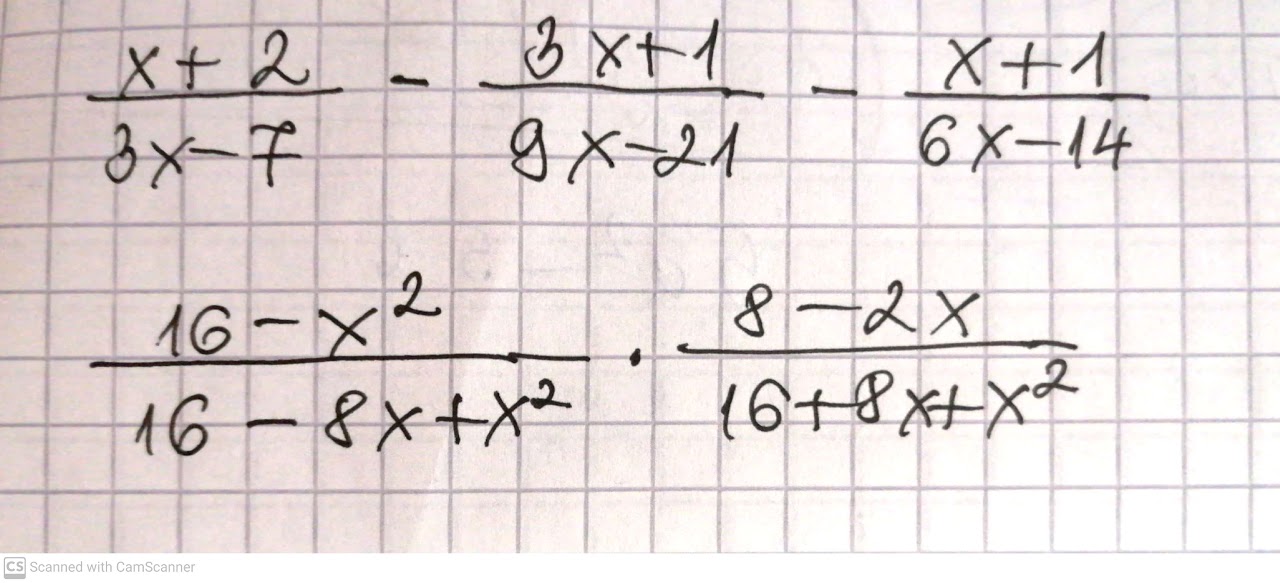 x + 2 / 3x - 7 - 3x + 1 / 9x - 21 - x + 1 / 6x - 14
16 - x² / 16 - 8x + x² · 8 - 2x / 16 + 8x + x²
CS Scanned with CamScanner